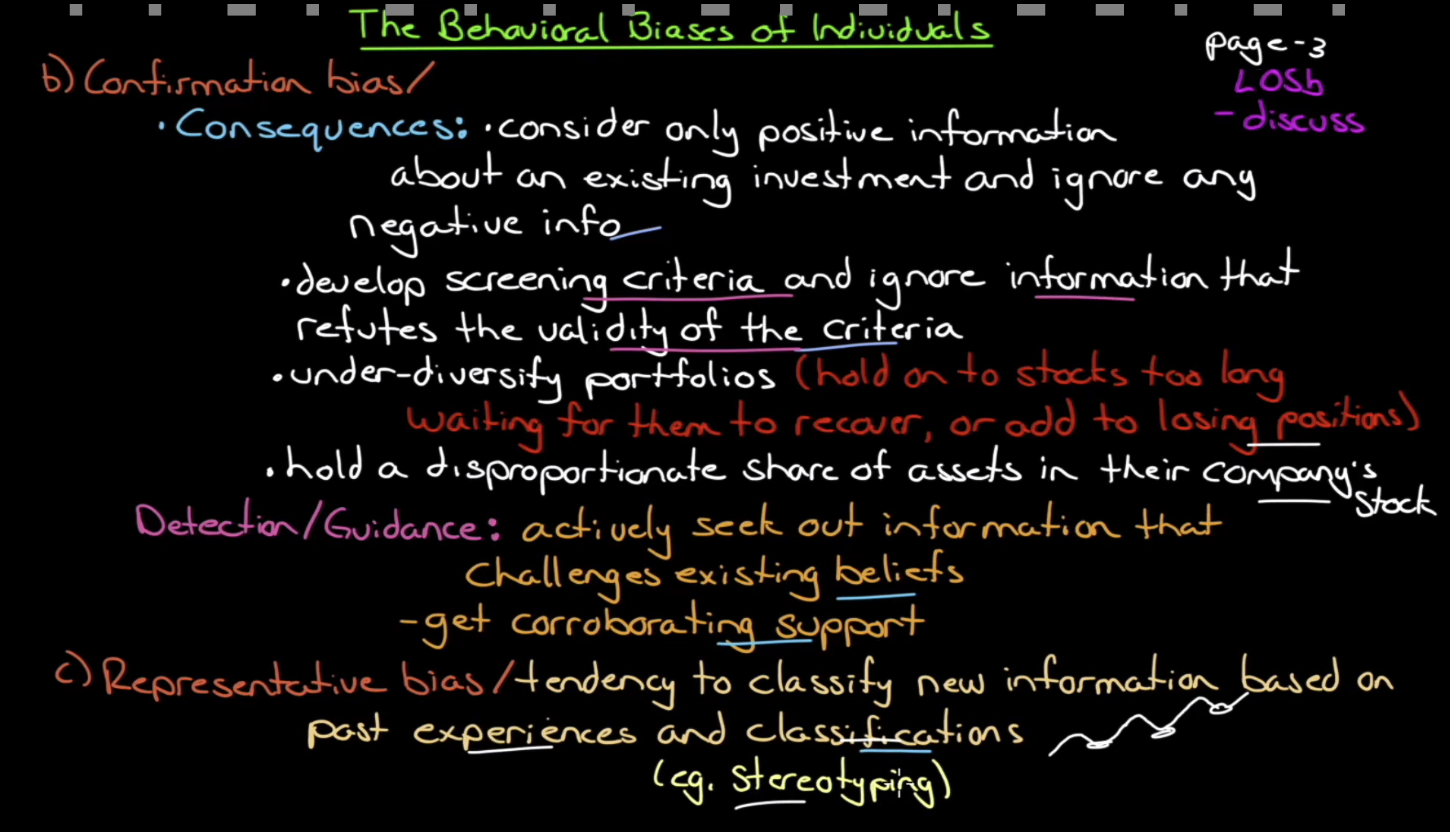 The Behavioral Biases of Individuals
page-3
LOSb
- discuss
b) Confirmation bias/
· Consequences: · consider only positive information
about an existing investment and ignore any
negative info
· develop screening criteria and ignore information that
refutes the validity of the criteria
· under-diversify portfolios (hold on to stocks too long
waiting for them to recover, or add to losing positions)
· hold a disproportionate share of assets in their company's
stock
Detection/Guidance: actively seek out information that
challenges existing beliefs
- get corroborating support
c) Representative bias/tendency to classify new information based on
past experiences and classifications
(eg. stereotyping)